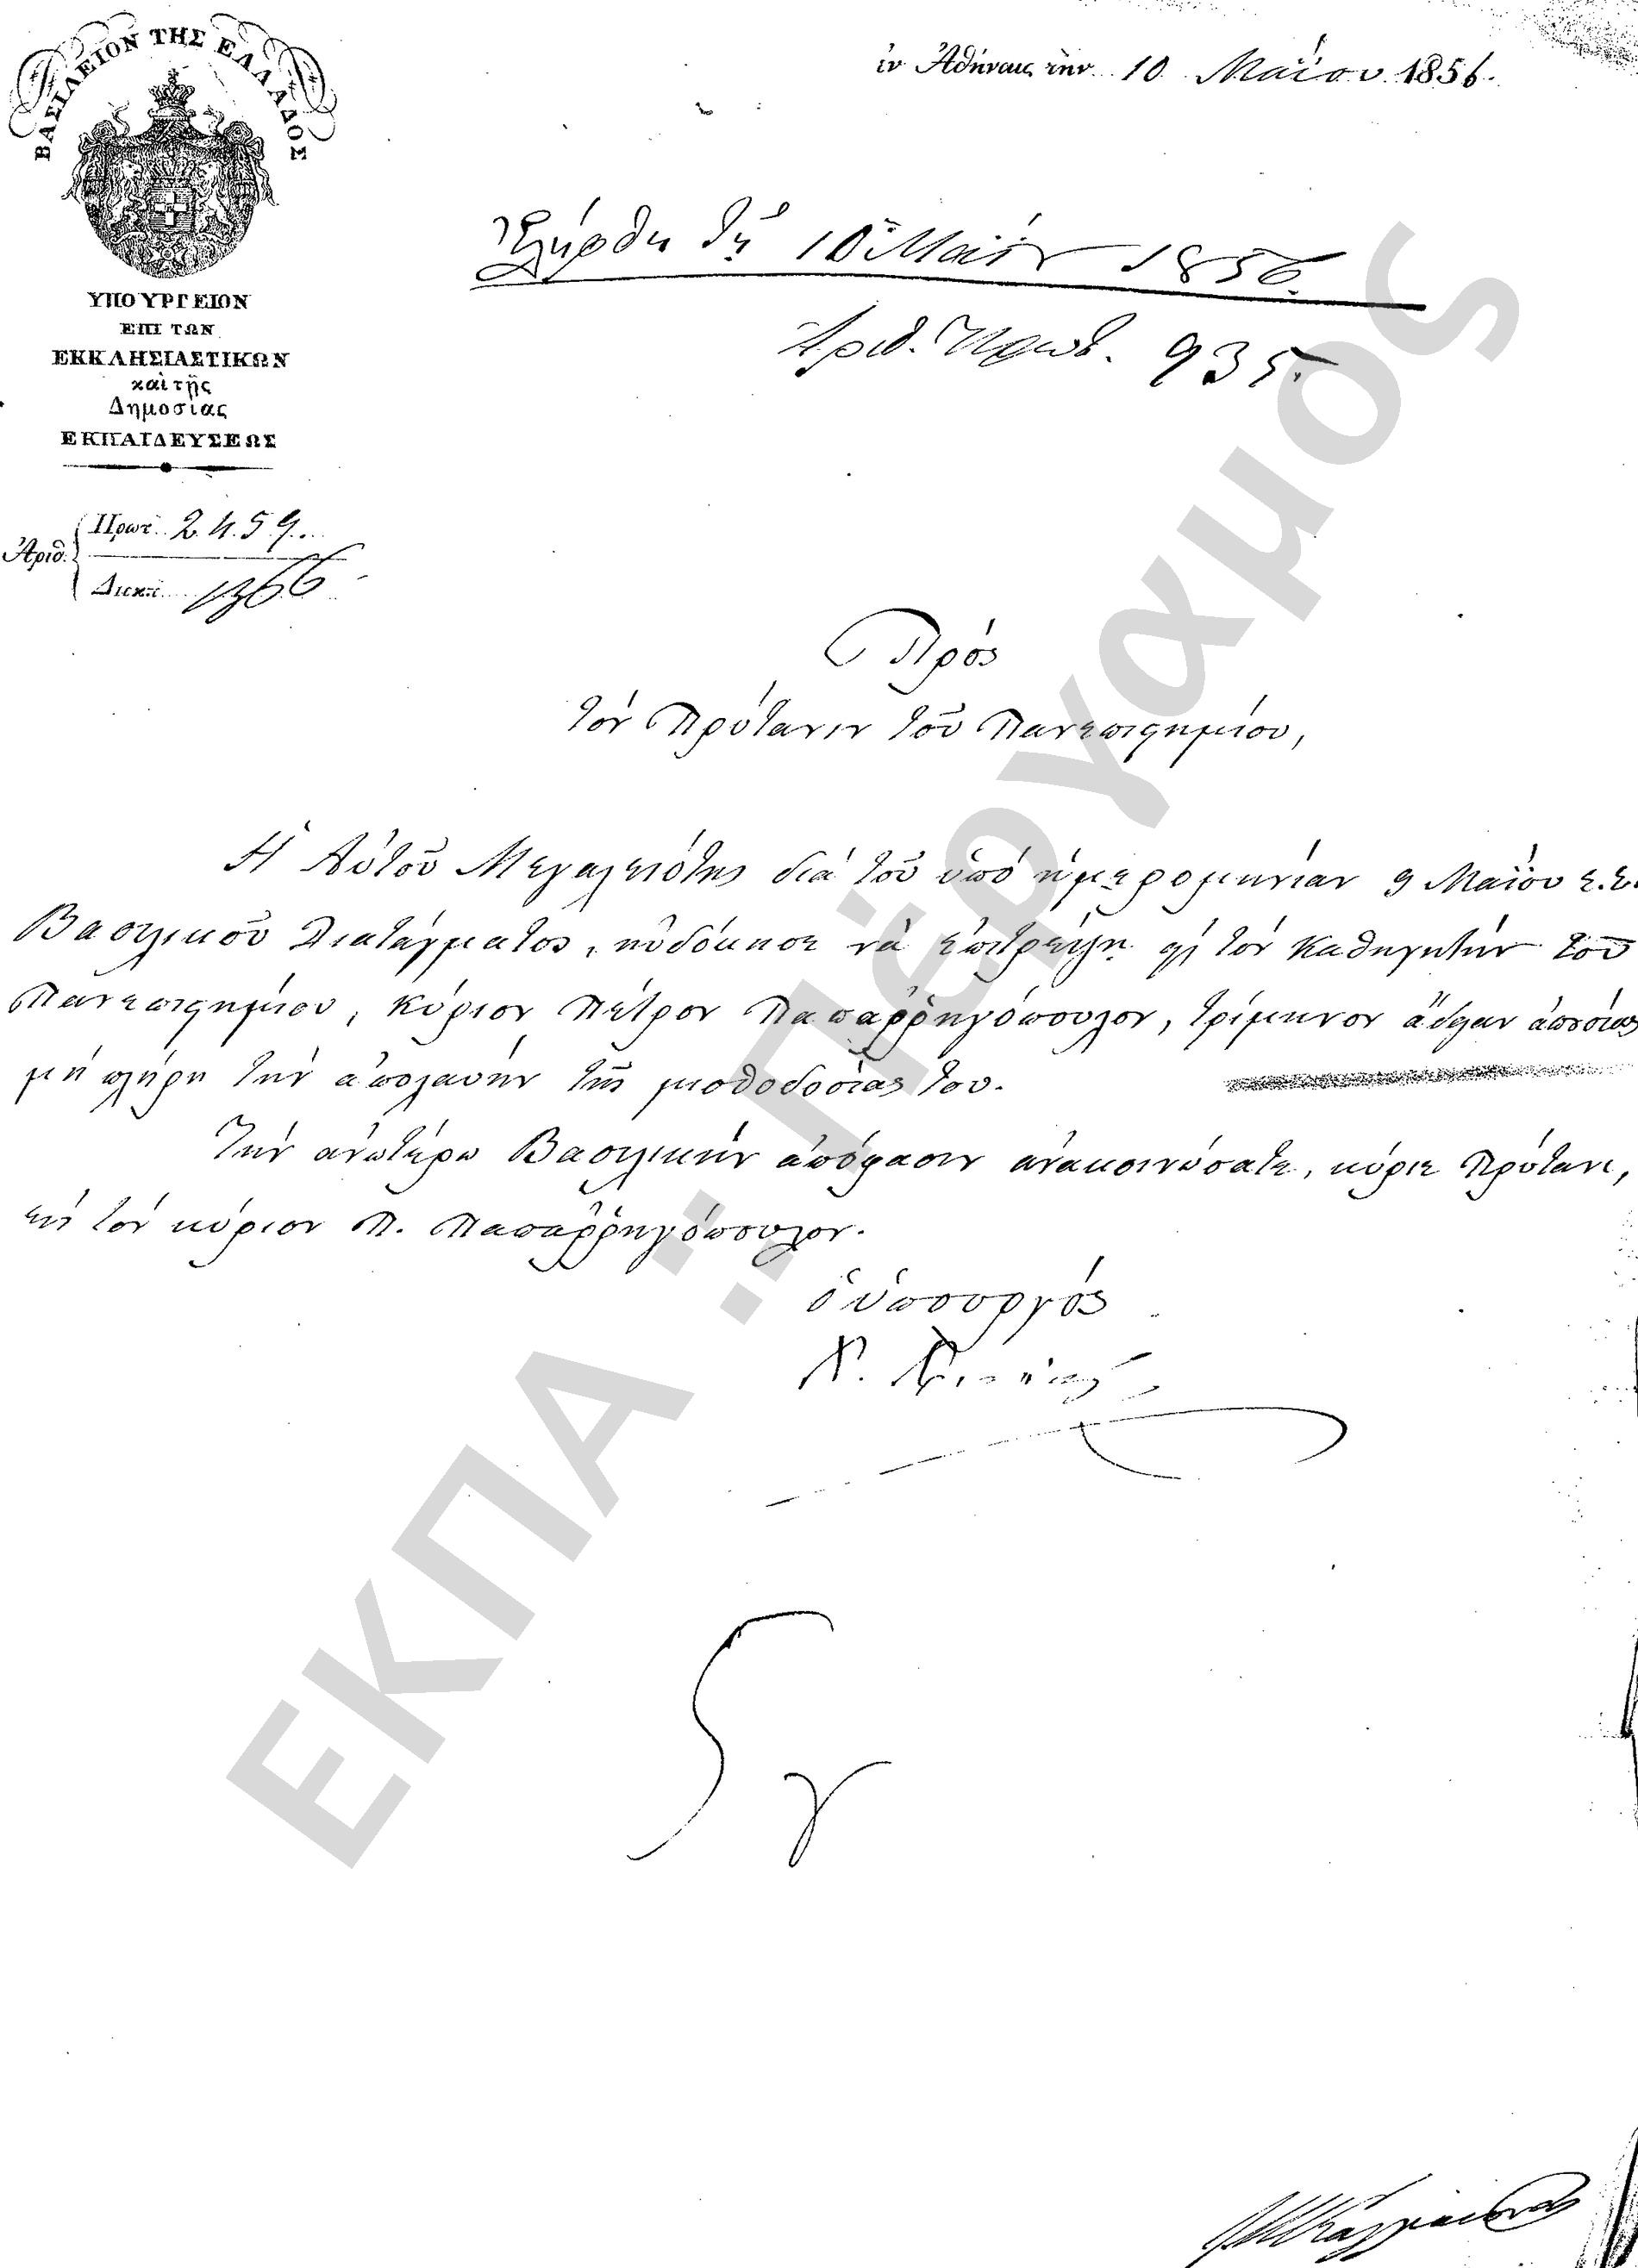 ΒΑΣΙΛΕΙΟΝ ΤΗΣ ΕΛΛΑΔΟΣ
ΥΠΟΥΡΓΕΙΟΝ
ΕΠΙ ΤΩΝ
ΕΚΚΛΗΣΙΑΣΤΙΚΩΝ
καὶ τῆς
Δημοσίας
ΕΚΠΑΙΔΕΥΣΕΩΣ
Ἀριθ.
Πρωτ. 2459
Διεκπ. 1366
ἐν Ἀθήναις τὴν 10 Μαΐου 1856.
Ἐλήφθη τῇ 10 Μαΐου 1856.
Ἀριθ. Πρωτ. 935
Πρὸς
τὸν Πρύτανιν τοῦ Πανεπιστημίου,
Ἡ Αὐτοῦ Μεγαλειότης διὰ τοῦ ὑπὸ ἡμερομηνίαν 9 Μαΐου ἐ.ἔ.
Βασιλικοῦ Διατάγματος, ηὐδόκησε νὰ ἐπιτρέψῃ εἰς τὸν καθηγητὴν τοῦ
Πανεπιστημίου, Κύριον Πέτρον Παπαῤῥηγόπουλον, τρίμηνον ἄδειαν ἀπουσίας
μὲ πλήρη τὴν ἀπολαυὴν τῆς μισθοδοσίας του.
Τὴν ἀνωτέρω Βασιλικὴν ἀπόφασιν ἀνακοινώσατε, κύριε Πρύτανι,
εἰς τὸν κύριον Π. Παπαῤῥηγόπουλον.
ὁ ὑπουργὸς
γ
ΕΚΠΑ :: Πέργαμος